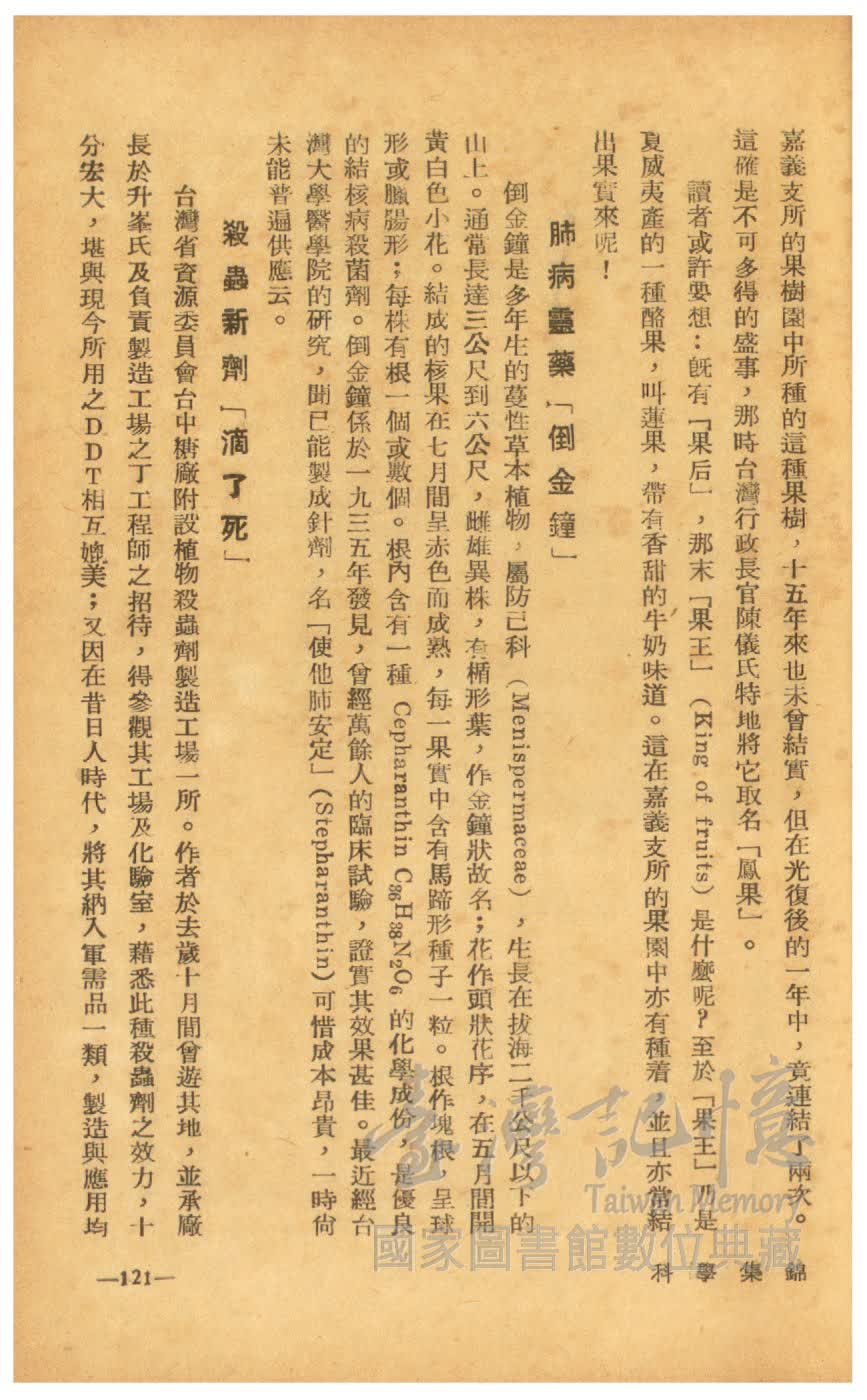 嘉義支所的果樹園中所種的這種果樹，十五年來也未曾結實，但在光復後的一年中，竟連結了兩次。
這確是不可多得的盛事，那時台灣行政長官陳儀氏特地將它取名「鳳果」。
讀者或許要想：既有「果后」，那末「果王」（King of fruits）是什麼呢？至於「果王」乃是
夏威夷產的一種酪果，叫蓮果，帶有香甜的牛奶味道。這在嘉義支所的果園中亦有種着，並且亦常結
出果實來呢！
肺病靈藥「倒金鐘」
倒金鐘是多年生的蔓性草本植物，屬防己科（Menispermaceae），生長在拔海二千公尺以下的
山上。通常長達三公尺到六公尺，雌雄異株，有楯形葉，作金鐘狀故名；花作頭狀花序，在五月間開
黃白色小花。結成的核果在七月間呈赤色而成熟，每一果實中含有馬蹄形種子一粒。根作塊根，呈球
形或臘腸形；每株有根一個或數個。根內含有一種 Cepharanthin C₃₆H₃₈N₂O₆ 的化學成份，是優良
的結核病殺菌劑。倒金鐘係於一九三五年發見，曾經萬餘人的臨床試驗，證實其效果甚佳。最近經台
灣大學醫學院的研究，聞已能製成針劑，名「使他肺安定」（Stepharanthin）可惜成本昂貴，一時尚
未能普遍供應云。
殺蟲新劑「滴了死」
台灣省資源委員會台中糖廠附設植物殺蟲劑製造工場一所。作者於去歲十月間曾遊其地，並承廠
長於升峯氏及負責製造工場之丁工程師之招待，得參觀其工場及化驗室，藉悉此種殺蟲劑之效力，十
分宏大，堪與現今所用之DDT相互媲美；又因在昔日人時代，將其納入軍需品一類，製造與應用均
錦集學科
—121—
臺灣記憶
Taiwan Memory
國家圖書館數位典藏